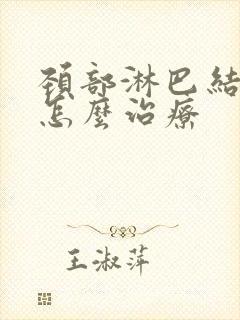 頚部淋巴結
怎麼治療
王淑萍